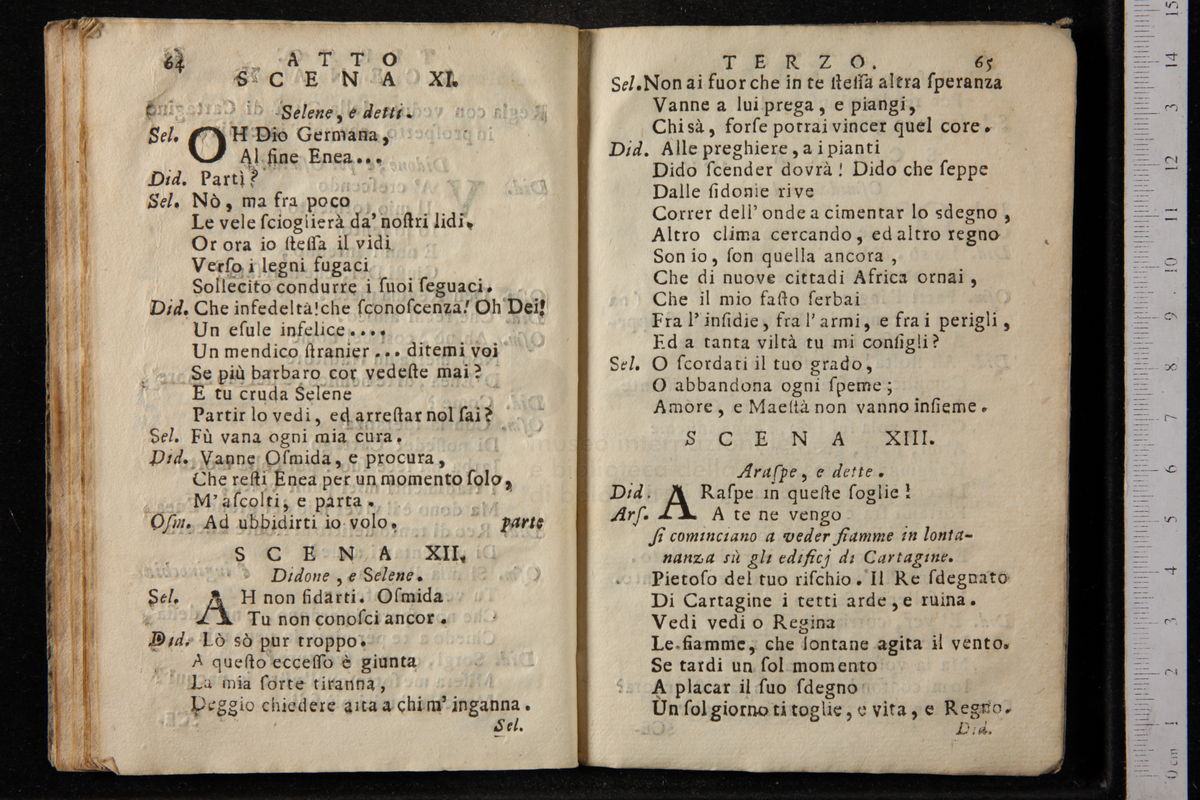 64
ATTO
SCENA XI.
Selene, e detti.
Sel. OH Dio Germana,
Al fine Enea...
Did. Partì?
Sel. Nò, ma fra poco
Le vele ſcioglierà da' noſtri lidi.
Or ora io ſteſſa il vidi
Verſo i legni fugaci
Sollecito condurre i ſuoi ſeguaci.
Did. Che infedeltà! che ſconoſcenza! Oh Dei!
Un eſule infelice....
Un mendico ſtranier... ditemi voi
Se più barbaro cor vedeſte mai?
E tu cruda Selene
Partir lo vedi, ed arreſtar nol ſai?
Sel. Fù vana ogni mia cura.
Did. Vanne Oſmida, e procura,
Che reſti Enea per un momento ſolo,
M'aſcolti, e parta.
Oſm. Ad ubbidirti io volo. parte
SCENA XII.
Didone, e Selene.
Sel. AH non fidarti. Oſmida
Tu non conoſci ancor.
Did. Lò sò pur troppo.
A queſto ecceſſo è giunta
La mia ſorte tiranna,
Peggio chiedere aita a chi m'inganna.
Sel.
TERZO. 65
Sel. Non ai fuor che in te ſteſſa altra ſperanza
Vanne a lui prega, e piangi,
Chi sà, forſe potrai vincer quel core.
Did. Alle preghiere, a i pianti
Dido ſcender dovrà! Dido che ſeppe
Dalle ſidonie rive
Correr dell'onde a cimentar lo sdegno,
Altro clima cercando, ed altro regno
Son io, ſon quella ancora,
Che di nuove cittadi Africa ornai,
Che il mio faſto ſerbai
Fra l'inſidie, fra l'armi, e fra i perigli,
Ed a tanta viltà tu mi conſigli?
Sel. O ſcordati il tuo grado,
O abbandona ogni ſpeme;
Amore, e Maeſtà non vanno inſieme.
SCENA XIII.
Araſpe, e dette.
Did. ARaſpe in queſte ſoglie!
Arſ. A te ne vengo
ſi cominciano a veder fiamme in lonta-
nanza sù gli edificj di Cartagine.
Pietoſo del tuo riſchio. Il Re ſdegnato
Di Cartagine i tetti arde, e ruina.
Vedi vedi o Regina
Le fiamme, che lontane agita il vento.
Se tardi un ſol momento
A placar il ſuo ſdegno
Un ſol giorno ti toglie, e vita, e Regno.
Did.